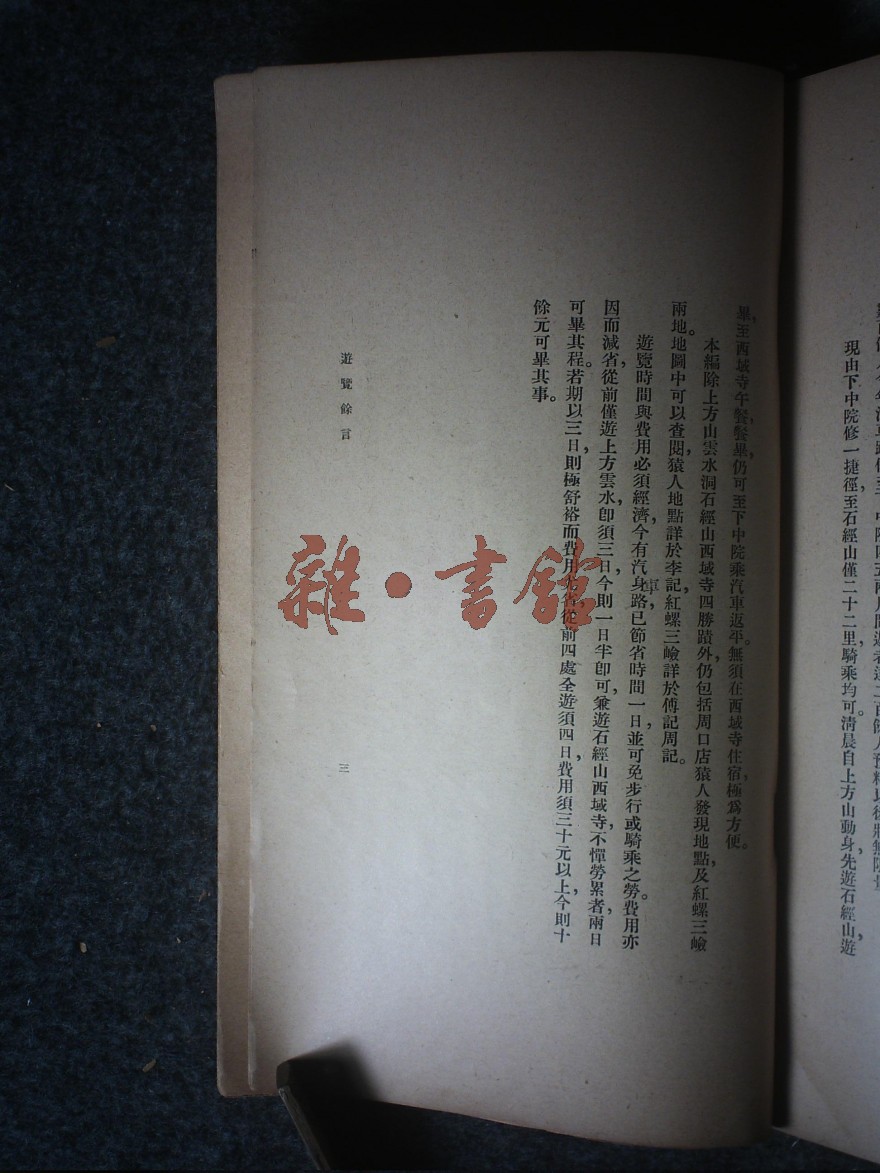 現由下中院修一捷徑，至石經山僅二十二里，騎乘均可。清晨自上方山動身，先遊石經山，遊
畢，至西域寺午餐，餐畢，仍可至下中院乘汽車返平。無須在西域寺住宿，極爲方便。
本編除上方山雲水洞石經山西域寺四勝蹟外，仍包括周口店猿人發現地點，及紅螺三嶮
兩地。地圖中可以查閱，猿人地點詳於李記，紅螺三嶮詳於傅記周記。
遊覽時間與費用必須經濟，今有汽車路，已節省時間一日，並可免步行或騎乘之勞。費用亦
因而減省，從前僅遊上方雲水，卽須三日，今則一日半卽可，兼遊石經山西域寺，不憚勞累者，兩日
可畢其程。若期以三日，則極舒裕，而費用
省，從前四處全遊須四日，費用須三十元以上，今則十
餘元可畢其事。
遊覽餘言
三
雜·書館